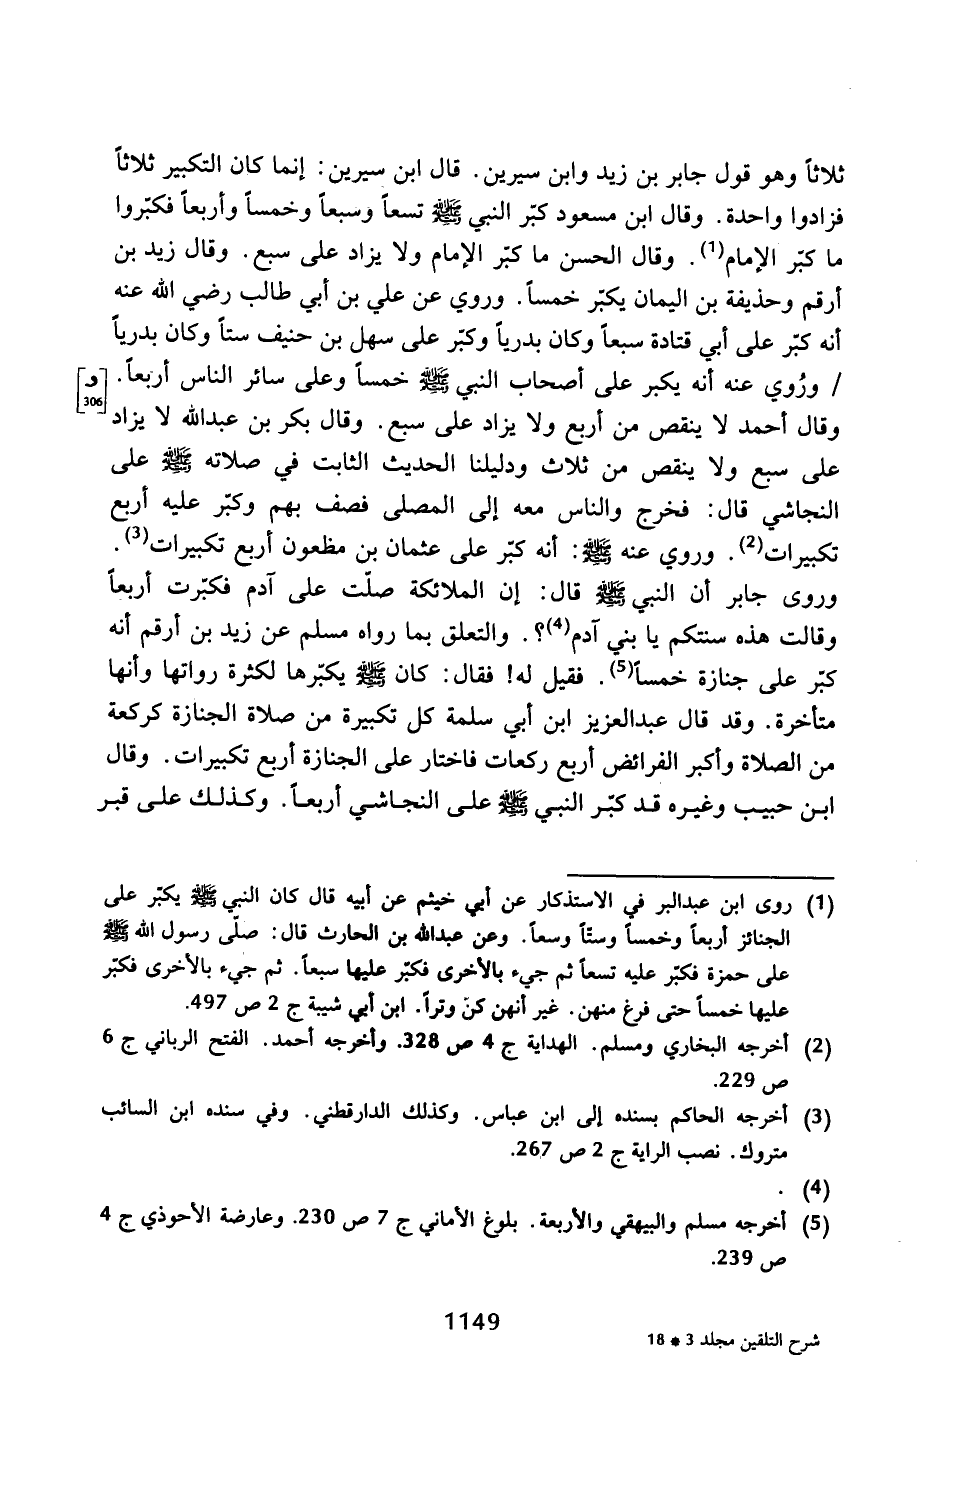 ثلاثاً وهو قول جابر بن زيد وابن سيرين. قال ابن سيرين: إنما كان التكبير ثلاثاً
فزادوا واحدة. وقال ابن مسعود كبّر النبي ﷺ تسعاً وسبعاً وخمساً وأربعاً فكبّروا
ما كبّر الإمام(1). وقال الحسن ما كبّر الإمام ولا يزاد على سبع. وقال زيد بن
أرقم وحذيفة بن اليمان يكبّر خمساً. وروي عن علي بن أبي طالب رضي الله عنه
أنه كبّر على أبي قتادة سبعاً وكان بدرياً وكبّر على سهل بن حنيف ستاً وكان بدرياً
/ ورُوي عنه أنه يكبر على أصحاب النبي ﷺ خمساً وعلى سائر الناس أربعاً. [و 306]
وقال أحمد لا ينقص من أربع ولا يزاد على سبع. وقال بكر بن عبدالله لا يزاد
على سبع ولا ينقص من ثلاث ودليلنا الحديث الثابت في صلاته ﷺ على
النجاشي قال: فخرج والناس معه إلى المصلى فصف بهم وكبّر عليه أربع
تكبيرات(2). وروي عنه ﷺ: أنه كبّر على عثمان بن مظعون أربع تكبيرات(3).
وروى جابر أن النبي ﷺ قال: إن الملائكة صلّت على آدم فكبّرت أربعاً
وقالت هذه سنتكم يا بني آدم(4)؟. والتعلق بما رواه مسلم عن زيد بن أرقم أنه
كبّر على جنازة خمساً(5). فقيل له! فقال: كان ﷺ يكبّرها لكثرة رواتها وأنها
متأخرة. وقد قال عبدالعزيز ابن أبي سلمة كل تكبيرة من صلاة الجنازة كركعة
من الصلاة وأكبر الفرائض أربع ركعات فاختار على الجنازة أربع تكبيرات. وقال
ابن حبيب وغيره قد كبّر النبي ﷺ على النجاشي أربعاً. وكذلك على قبر
(1) روى ابن عبدالبر في الاستذكار عن أبي خيثم عن أبيه قال كان النبي ﷺ يكبّر على
الجنائز أربعاً وخمساً وستّاً وسعاً. وعن عبدالله بن الحارث قال: صلّى رسول الله ﷺ
على حمزة فكبّر عليه تسعاً ثم جيء بالأخرى فكبّر عليها سبعاً. ثم جيء بالأخرى فكبّر
عليها خمساً حتى فرغ منهن. غير أنهن كنّ وتراً. ابن أبي شيبة ج 2 ص 497.
(2) أخرجه البخاري ومسلم. الهداية ج 4 ص 328. وأخرجه أحمد. الفتح الرباني ج 6
ص 229.
(3) أخرجه الحاكم بسنده إلى ابن عباس. وكذلك الدارقطني. وفي سنده ابن السائب
متروك. نصب الراية ج 2 ص 267.
(4) .
(5) أخرجه مسلم والبيهقي والأربعة. بلوغ الأماني ج 7 ص 230. وعارضة الأحوذي ج 4
ص 239.
1149
شرح التلقين مجلد 3 * 18